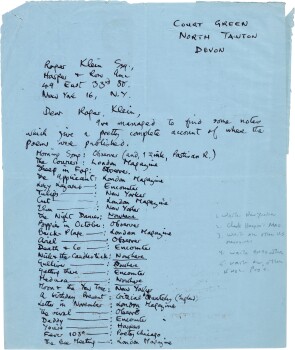 COURT GREEN
NORTH TAWTON
DEVON
Roger Klein Esq.,
Harper & Row Inc
49 East 33rd St.
New York 16, N.Y.
Dear Roger Klein,
I've managed to find some notes
which give a pretty complete account of where the
poems were published.
Morning Song: Observer (and, I think, Partisan R.)
The Couriers: London Magazine
Sheep in Fog: Observer
The Applicant: London Magazine
Lady Lazarus: Encounter
Tulips: New Yorker
Cut: London Magazine
Elm: New Yorker
The Night Dances: Nowhere
Poppies in October: Observer
Berck-Plage: London Magazine
Ariel: Observer
Death & Co: Encounter
Nick & the Candlestick: Nowhere
Gulliver: Nowhere
Getting there: Encounter
Medusa: Nowhere
Moon & the Yew Tree: New Yorker
A Birthday Present: Critical Quarterly
Letter in November: London Magazine
The Rival: Observer
Daddy: Encounter
You're: Harpers
Fever 103°: Poetry Chicago
The Bee Meeting: London Magazine